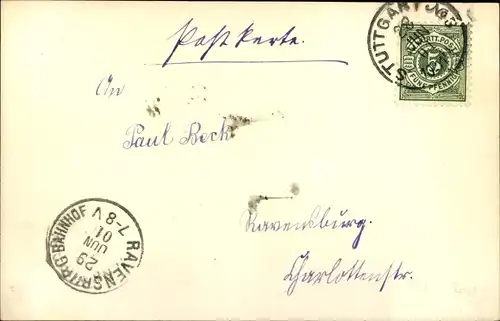 Postkarte.
STUTTGART No 3
28 JUN
WÜRTT. POST
5
FÜNF PFENNIG
An
Paul Beck
RAVENSBURG BAHNHOF
29 JUN 01
7-8 V
Ravensburg.
Charlottenstr.